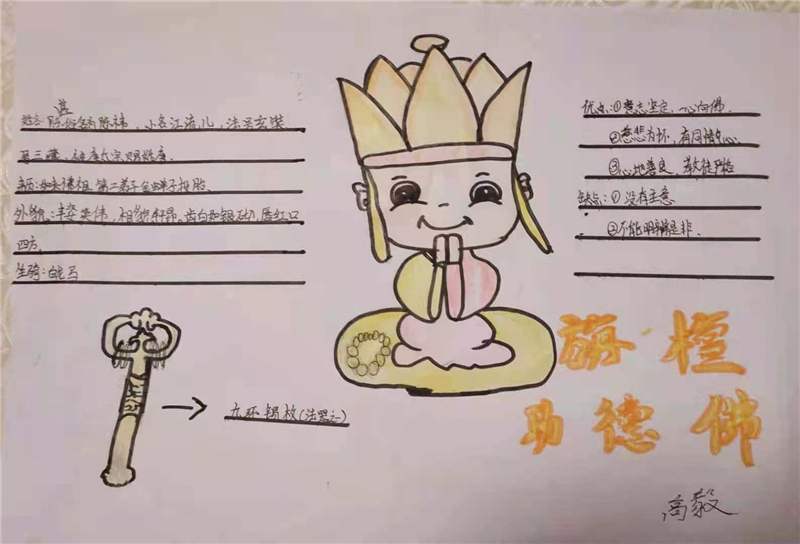 姓名:陈祎,小名江流儿,法号玄奘
唐三藏,
前历:如来佛祖第二弟子金蝉子投胎
外貌:丰姿英伟,相貌轩昂。齿白如银砌,唇红口
四方。
坐骑:白龙马
九环锡杖(法器之一)
优点:①意志坚定,一心向佛。
②慈悲为怀,有同情心。
③心地善良,教徒严格
缺点:①没有主意
②不能明辨是非.
旃檀
功德佛
高毅